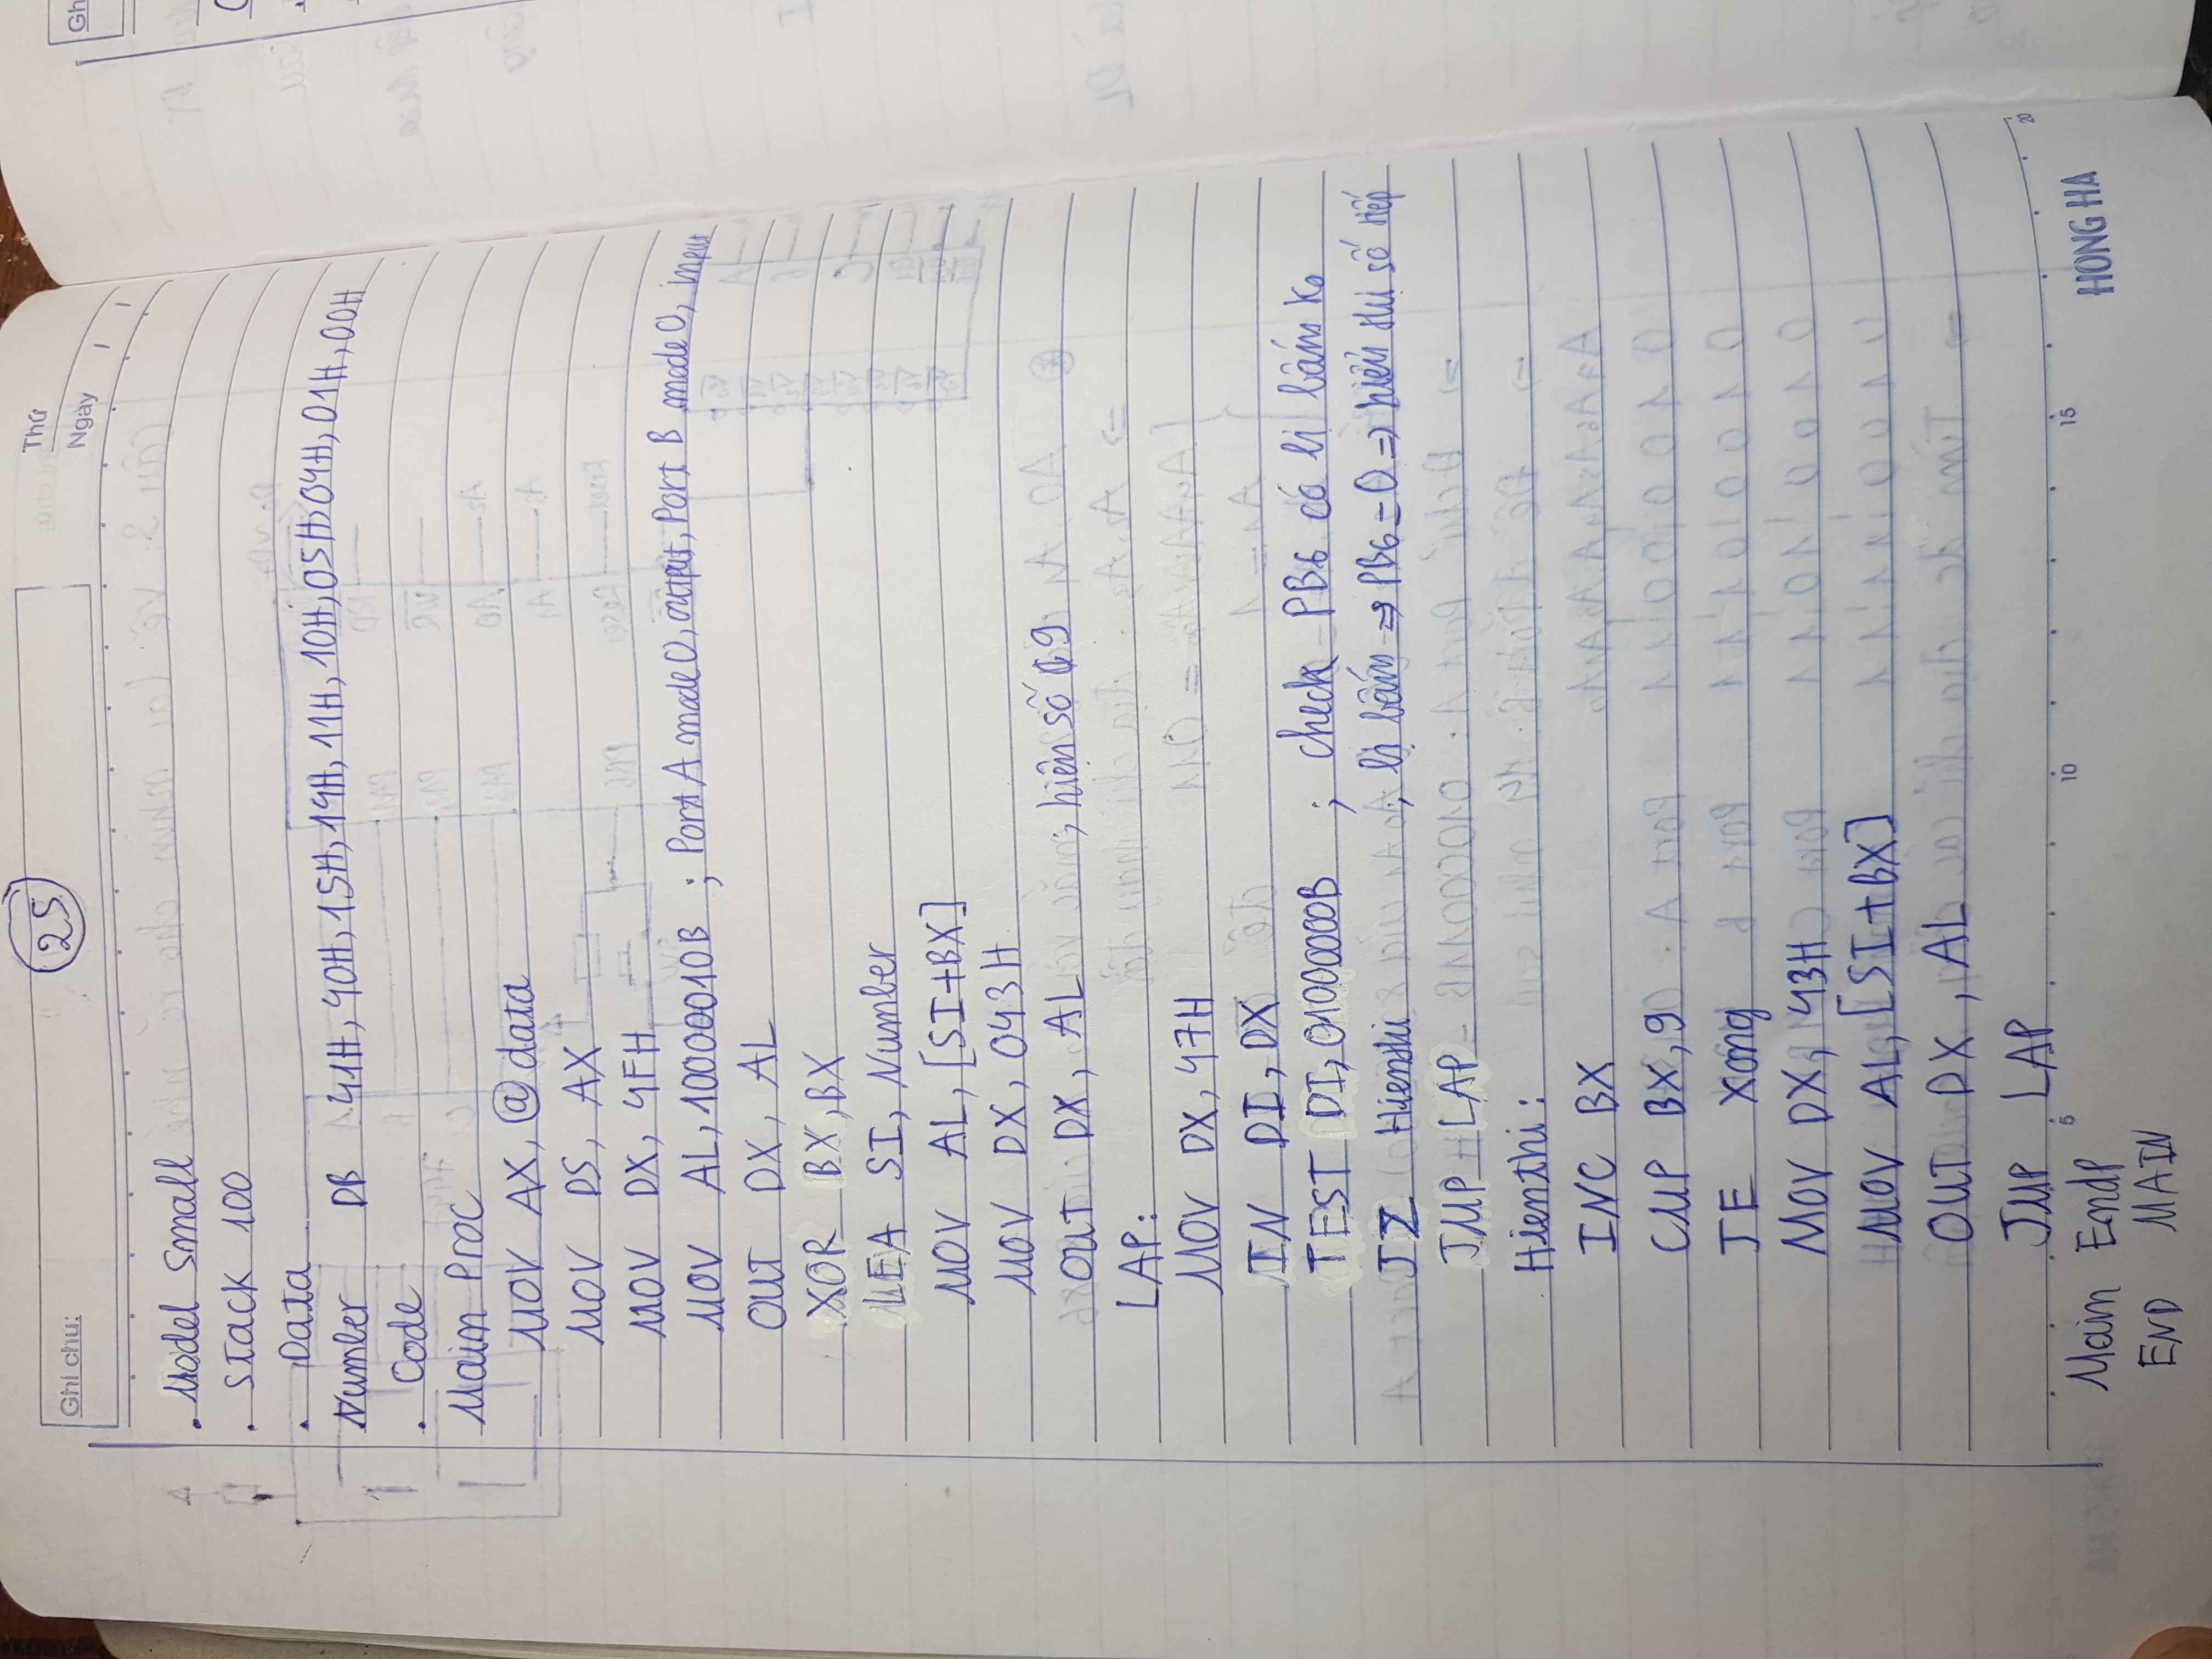 25
Ghi chú:
Thứ
Ngày
.Model Small
. Stack 100
. Data
Number DB 41H, 40H, 15H, 14H, 11H, 10H, 05H, 04H, 01H, 00H
. Code
Main Proc
MOV AX, @data
MOV DS, AX
MOV DX, 4FH
MOV AL, 10000010B ; Port A mode 0, output, Port B mode 0, input
OUT DX, AL
XOR BX, BX
LEA SI, Number
MOV AL, [SI+BX]
MOV DX, 043H
OUT DX, AL ; hiện số 9
LAP:
MOV DX, 47H
IN DI, DX
TEST DI, 01000000B ; check PB6 có bị bấm ko
JZ Hienthi ; bị bấm => PB6 = 0 => hiển thị số tiếp
JMP LAP
Hienthi:
INC BX
CMP BX, 9
JE Xong
MOV DX, 43H
MOV AL, [SI+BX]
OUT DX, AL
JMP LAP
5 10 15 20
Main Endp
HONG HA
END MAIN